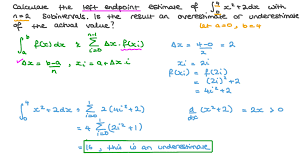 Calculate the left endpoint estimate of ∫₀⁴ x²+2dx with
n=2 subintervals. Is the result an overestimate or underestimate
of the actual value? let a=0, b=4
∫ₐᵇ f(x)dx ≈ Σᵢ₌₀ⁿ⁻¹ Δx · f(xᵢ)
Δx = b-a/n, xᵢ = a+Δx·i
Δx = 4-0/2 = 2
xᵢ = 2i
f(xᵢ) = f(2i)
= (2i)²+2
= 4i²+2
∫₀⁴ x²+2dx ≈ Σᵢ₌₀¹ 2(4i²+2)
= 4 Σᵢ₌₀¹ (2i²+1)
= 16, this is an underestimate
d/dx (x²+2) = 2x > 0